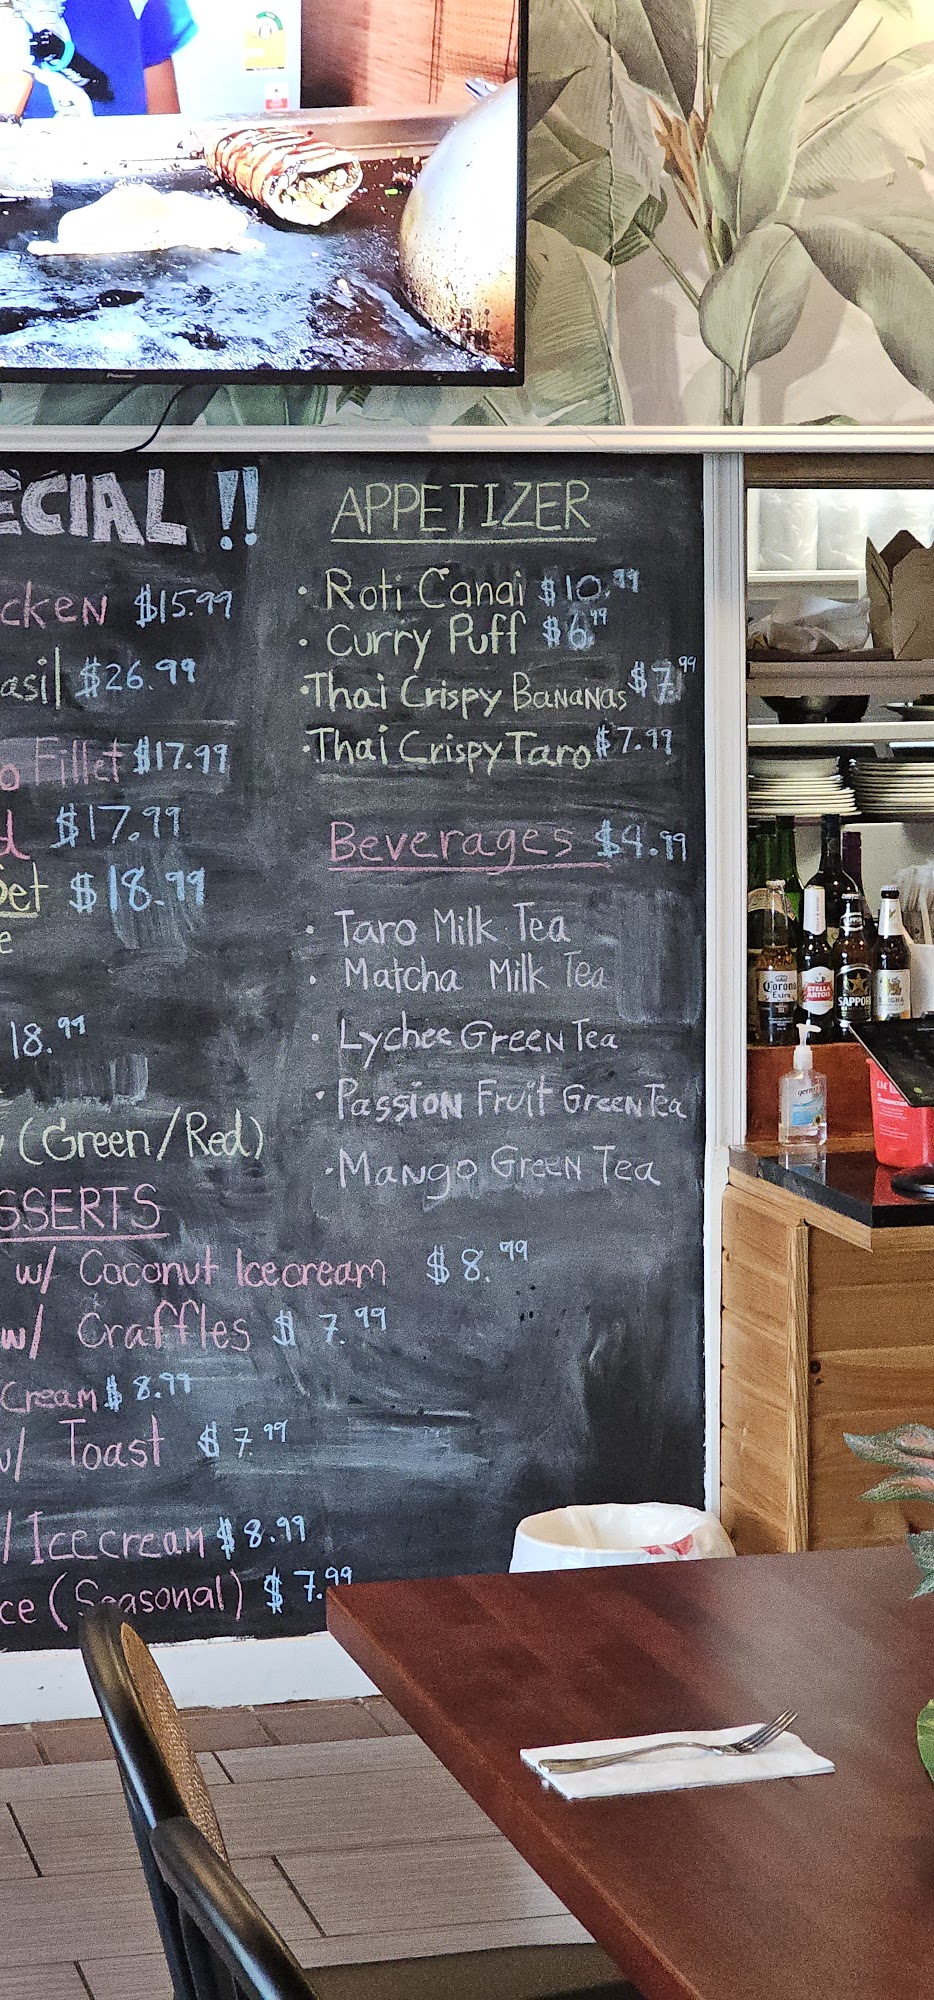 ECIAL !!
cken $15.99
asil $26.99
o Fillet $17.99
d $17.99
Set $18.99
e
18.99
(Green/Red)
SSERTS
w/ Coconut Icecream $8.99
w/ Craffles $7.99
Cream $8.99
w/ Toast $7.99
/ Icecream $8.99
ce (Seasonal) $7.99
APPETIZER
• Roti Canai $10.99
• Curry Puff $6.99
• Thai Crispy Bananas $7.99
• Thai Crispy Taro $7.99
Beverages $4.99
• Taro Milk Tea
• Matcha Milk Tea
• Lychee Green Tea
• Passion Fruit Green Tea
• Mango Green Tea
Pioneer
Corona
Extra
STELLA
ARTOIS
SAPPORO